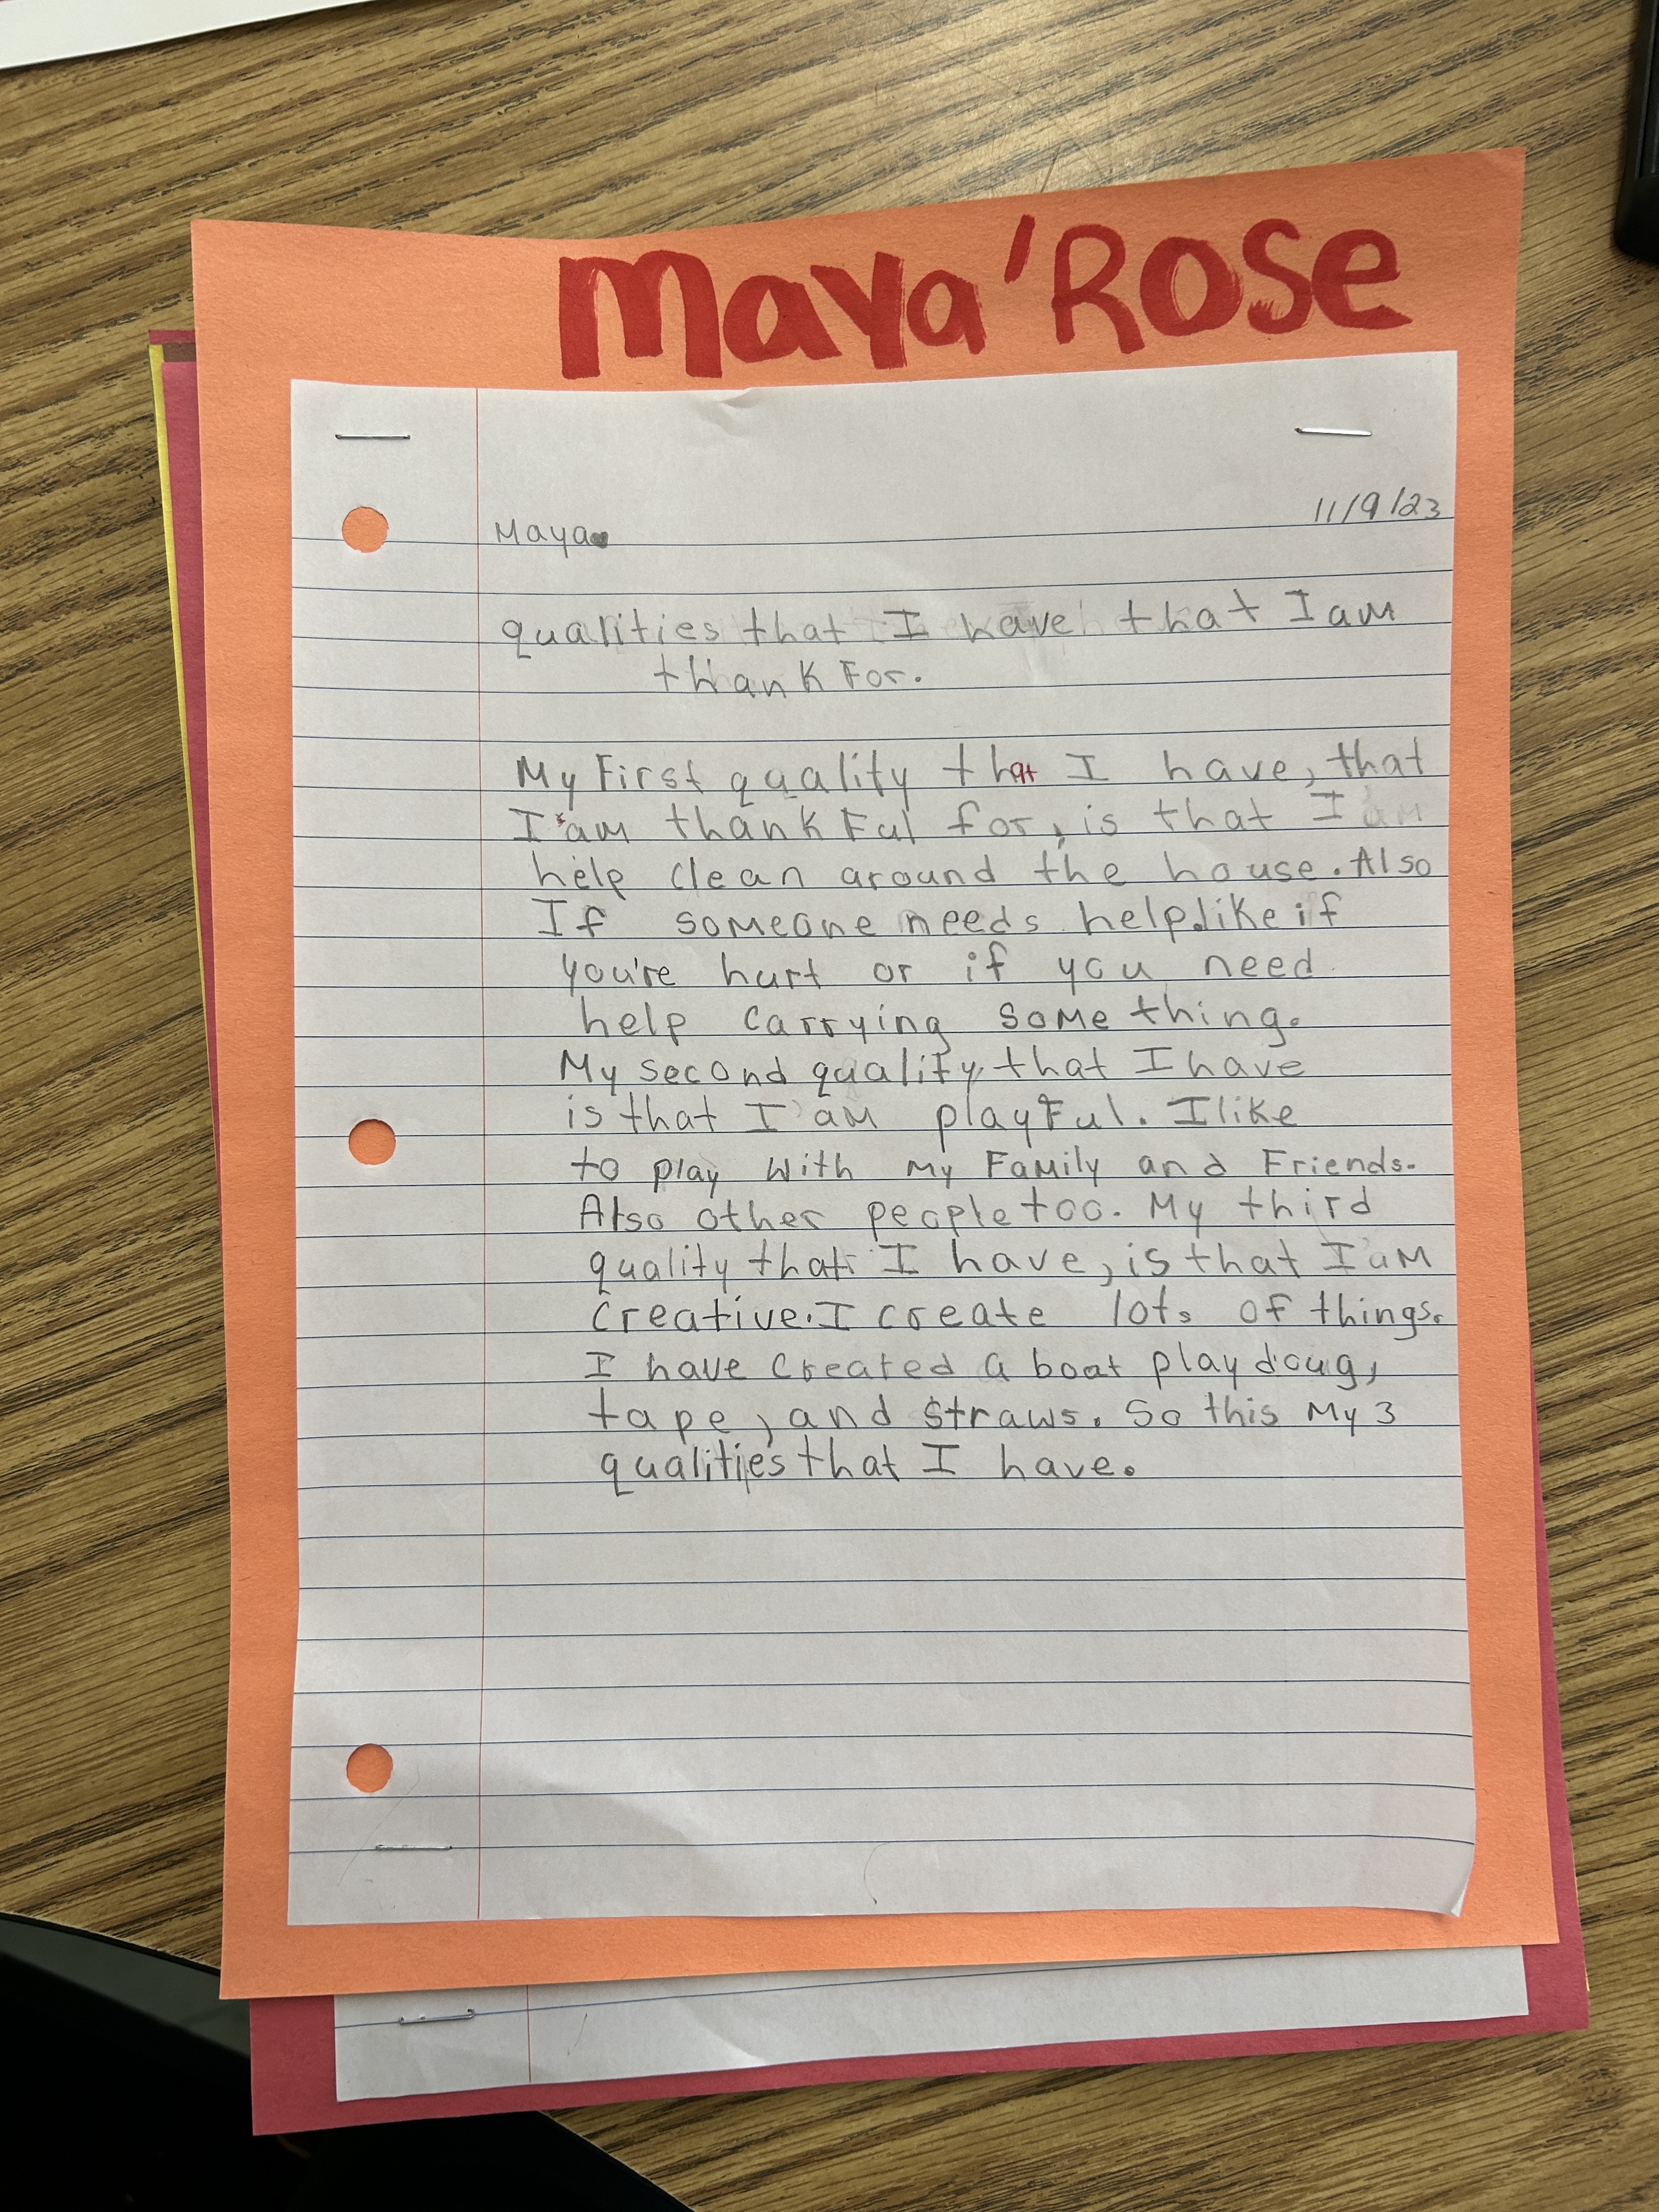 Maya'Rose
Maya
11/9/23
qualities that I have that I am
thank For.
My First quality that I have, that
I am thankful for, is that I
help clean around the house. Also
If someone needs help.like if
you're hurt or if you need
help carrying some thing.
My second quality that I have
is that I am playful. I like
to play with my Family and Friends.
Also other people too. My third
quality that I have, is that I am
creative. I create lots of things.
I have created a boat play doug,
tape, and straws. So this My 3
qualities that I have.